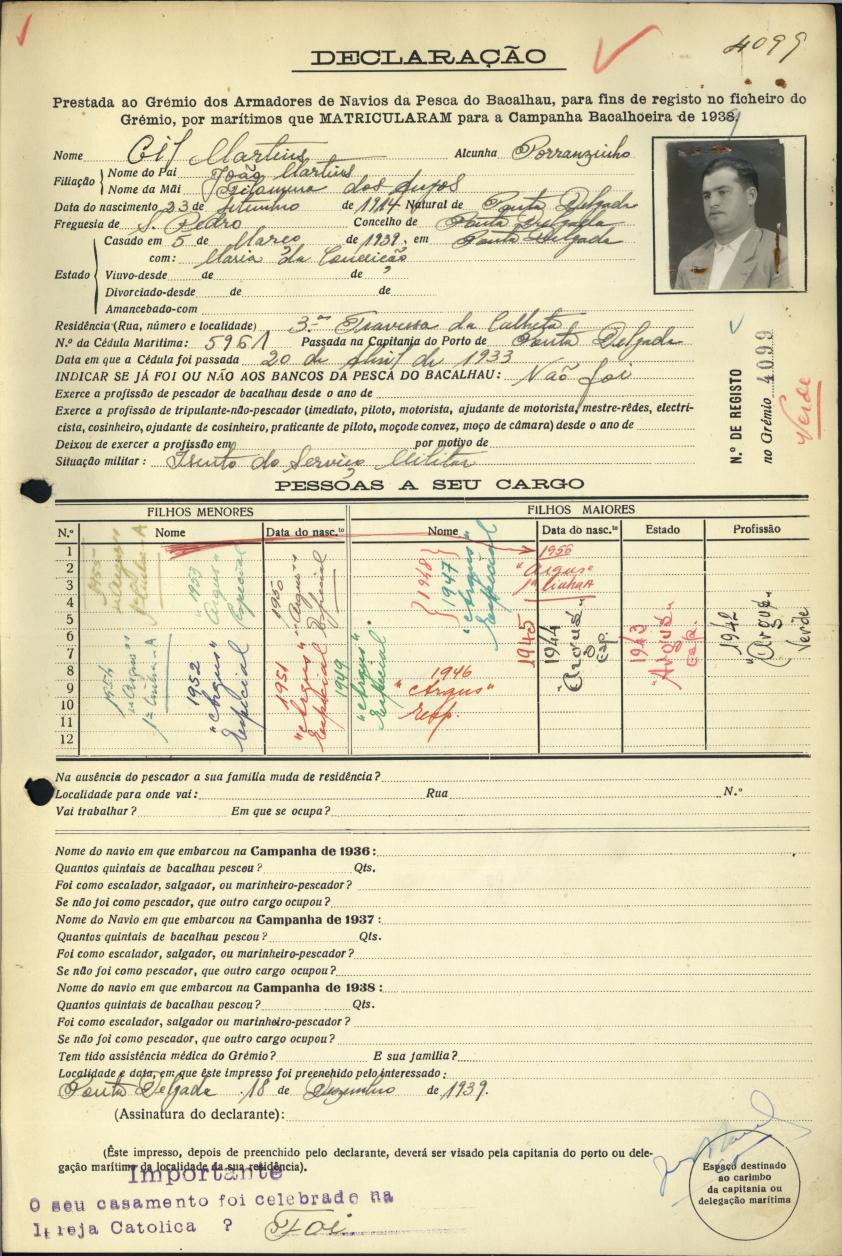 4099
DECLARAÇÃO
Prestada ao Grémio dos Armadores de Navios da Pesca do Bacalhau, para fins de registo no ficheiro do
Grémio, por marítimos que MATRICULARAM para a Campanha Bacalhoeira de 1938
Nome Gil Martins Alcunha Porranzinho
Filiação Nome do Pai João Martins
Nome da Mãi Filomena dos Anjos
Data do nascimento 23 de Setembro de 1914 Natural de Ponta Delgada
Freguesia de S. Pedro Concelho de Ponta Delgada
Casado em 5 de Março de 1939, em Ponta Delgada
com: Maria da Conceição
Estado Viuvo-desde de de
Divorciado-desde de de
Amancebado-com
Residência (Rua, número e localidade) 3.ª Travessa da Calheta
N.º da Cédula Marítima: 5961 Passada na Capitania do Porto de Ponta Delgada
Data em que a Cédula foi passada 20 de Abril de 1933
INDICAR SE JÁ FOI OU NÃO AOS BANCOS DA PESCA DO BACALHAU: Não foi
Exerce a profissão de pescador de bacalhau desde o ano de
Exerce a profissão de tripulante-não-pescador (imediato, piloto, motorista, ajudante de motorista, mestre-rêdes, electri-
cista, cosinheiro, ajudante de cosinheiro, praticante de piloto, moço de convez, moço de câmara) desde o ano de
Deixou de exercer a profissão em por motivo de
Situação militar: Isento do Serviço Militar
N.º DE REGISTO
no Grémio 4099
Verde
PESSOAS A SEU CARGO
FILHOS MENORES FILHOS MAIORES
N.º Nome Data do nasc.to Nome Data do nasc.to Estado Profissão
1
2
3
4
5
6
7
8
9
10
11
12
1955 "Argus" 1ª Linha-A
1953 Argus Especial
1950 "Argus" Especial
1948
1947
"Argus" Especial
1956
"Argus"
1ª linha A
1954 "Argus" 1ª Linha-A
1952 "Argus" Especial
1951 "Argus" Especial
1949 "Argus" Especial
1946
"Argus"
Esp.
1945
1944 "Argus" Esp.
1943 "Argus" Esp.
1942 "Argus" Verde
Na ausência do pescador a sua família muda de residência?
Localidade para onde vai: Rua N.º
Vai trabalhar? Em que se ocupa?
Nome do navio em que embarcou na Campanha de 1936:
Quantos quintais de bacalhau pescou? Qts.
Foi como escalador, salgador, ou marinheiro-pescador?
Se não foi como pescador, que outro cargo ocupou?
Nome do Navio em que embarcou na Campanha de 1937:
Quantos quintais de bacalhau pescou? Qts.
Foi como escalador, salgador, ou marinheiro-pescador?
Se não foi como pescador, que outro cargo ocupou?
Nome do navio em que embarcou na Campanha de 1938:
Quantos quintais de bacalhau pescou? Qts.
Foi como escalador, salgador ou marinheiro-pescador?
Se não foi como pescador, que outro cargo ocupou?
Tem tido assistência médica do Grémio? E sua família?
Localidade e data, em que êste impresso foi preenchido pelo interessado:
Ponta Delgada 18 de Dezembro de 1939.
(Assinatura do declarante):
(Êste impresso, depois de preenchido pelo declarante, deverá ser visado pela capitania do porto ou dele-
gação marítima da localidade da sua residência).
Espaço destinado
ao carimbo
da capitania ou
delegação marítima
Importante
O seu casamento foi celebrado na
Igreja Catolica ? Foi